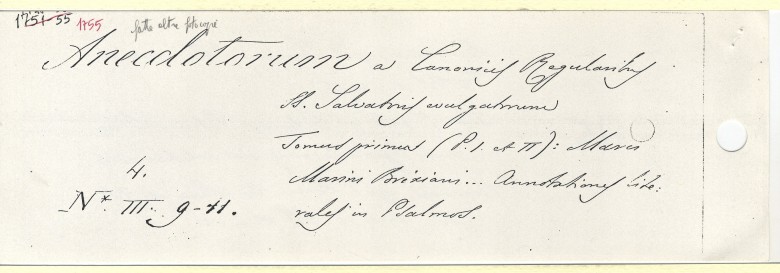 1751-55 1755 fatte altre fotocopie
Anecdotorum a Canonicis Regularibus
SS. Salvatoris evulgatorum
Tomus primus (P. I. et II): Marci
Marini Brixiani... Annotationes lite:
rales in Psalmos.
4.
N.x III. 9-11.